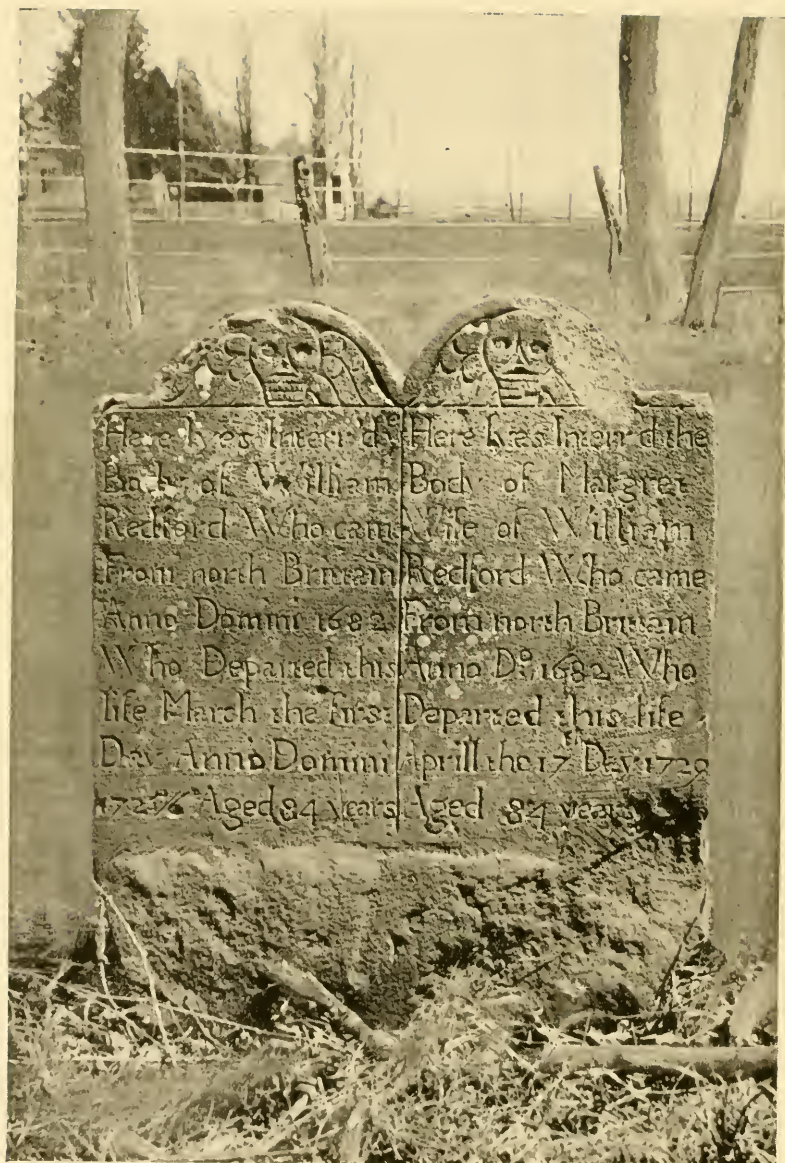 Here lyes Interr'd ye
Body of William
Redford Who came
From north Brittain
Anno Domini 1682
Who Departed this
life March the first
Day Anno Domini
172 5/6 Aged 84 years
Here lyes Interr'd the
Body of Margret
Wife of William
Redford Who came
From north Brittain
Anno Do: 1682 Who
Departed this life
Aprill the 17th Day 1729
Aged 84 years